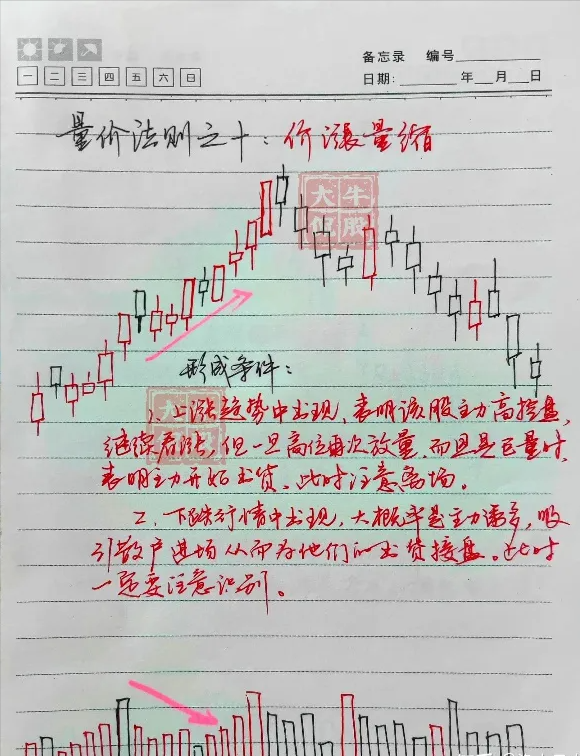 备忘录 编号
一 二 三 四 五 六 日
日期: 年 月 日
量价法则之十：价涨量缩
大牛
侃股
形成条件：
1、上涨趋势中出现，表明该股主力高控盘，
继续看涨，但一旦高位再次放量，而且是巨量时，
表明主力开始出货，此时注意离场。
2、下跌行情中出现，大概率是主力诱多，吸
引散户进场从而为他们的出货接盘。此时
一定要注意识别。